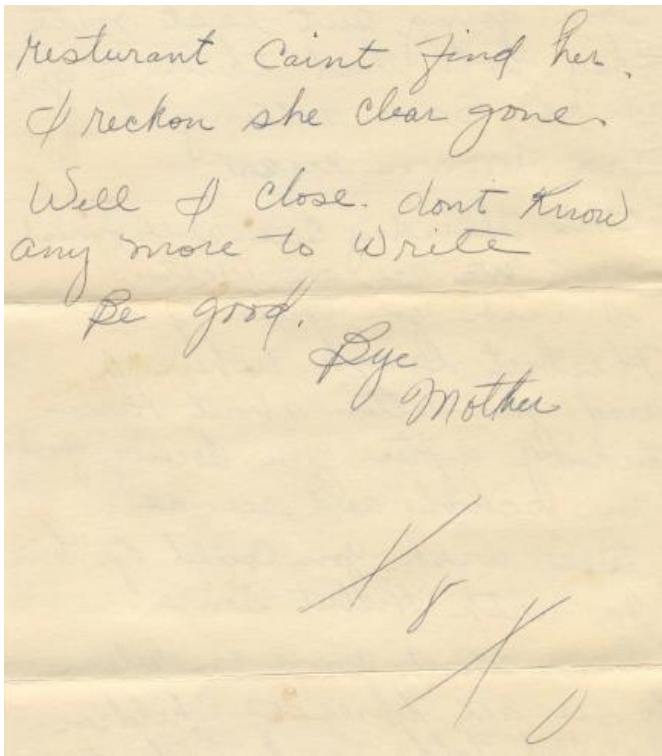 resturant Caint find her.
I reckon she clear gone.
Well I close. dont Know
any more to Write
Be good.
Bye
Mother
X
X